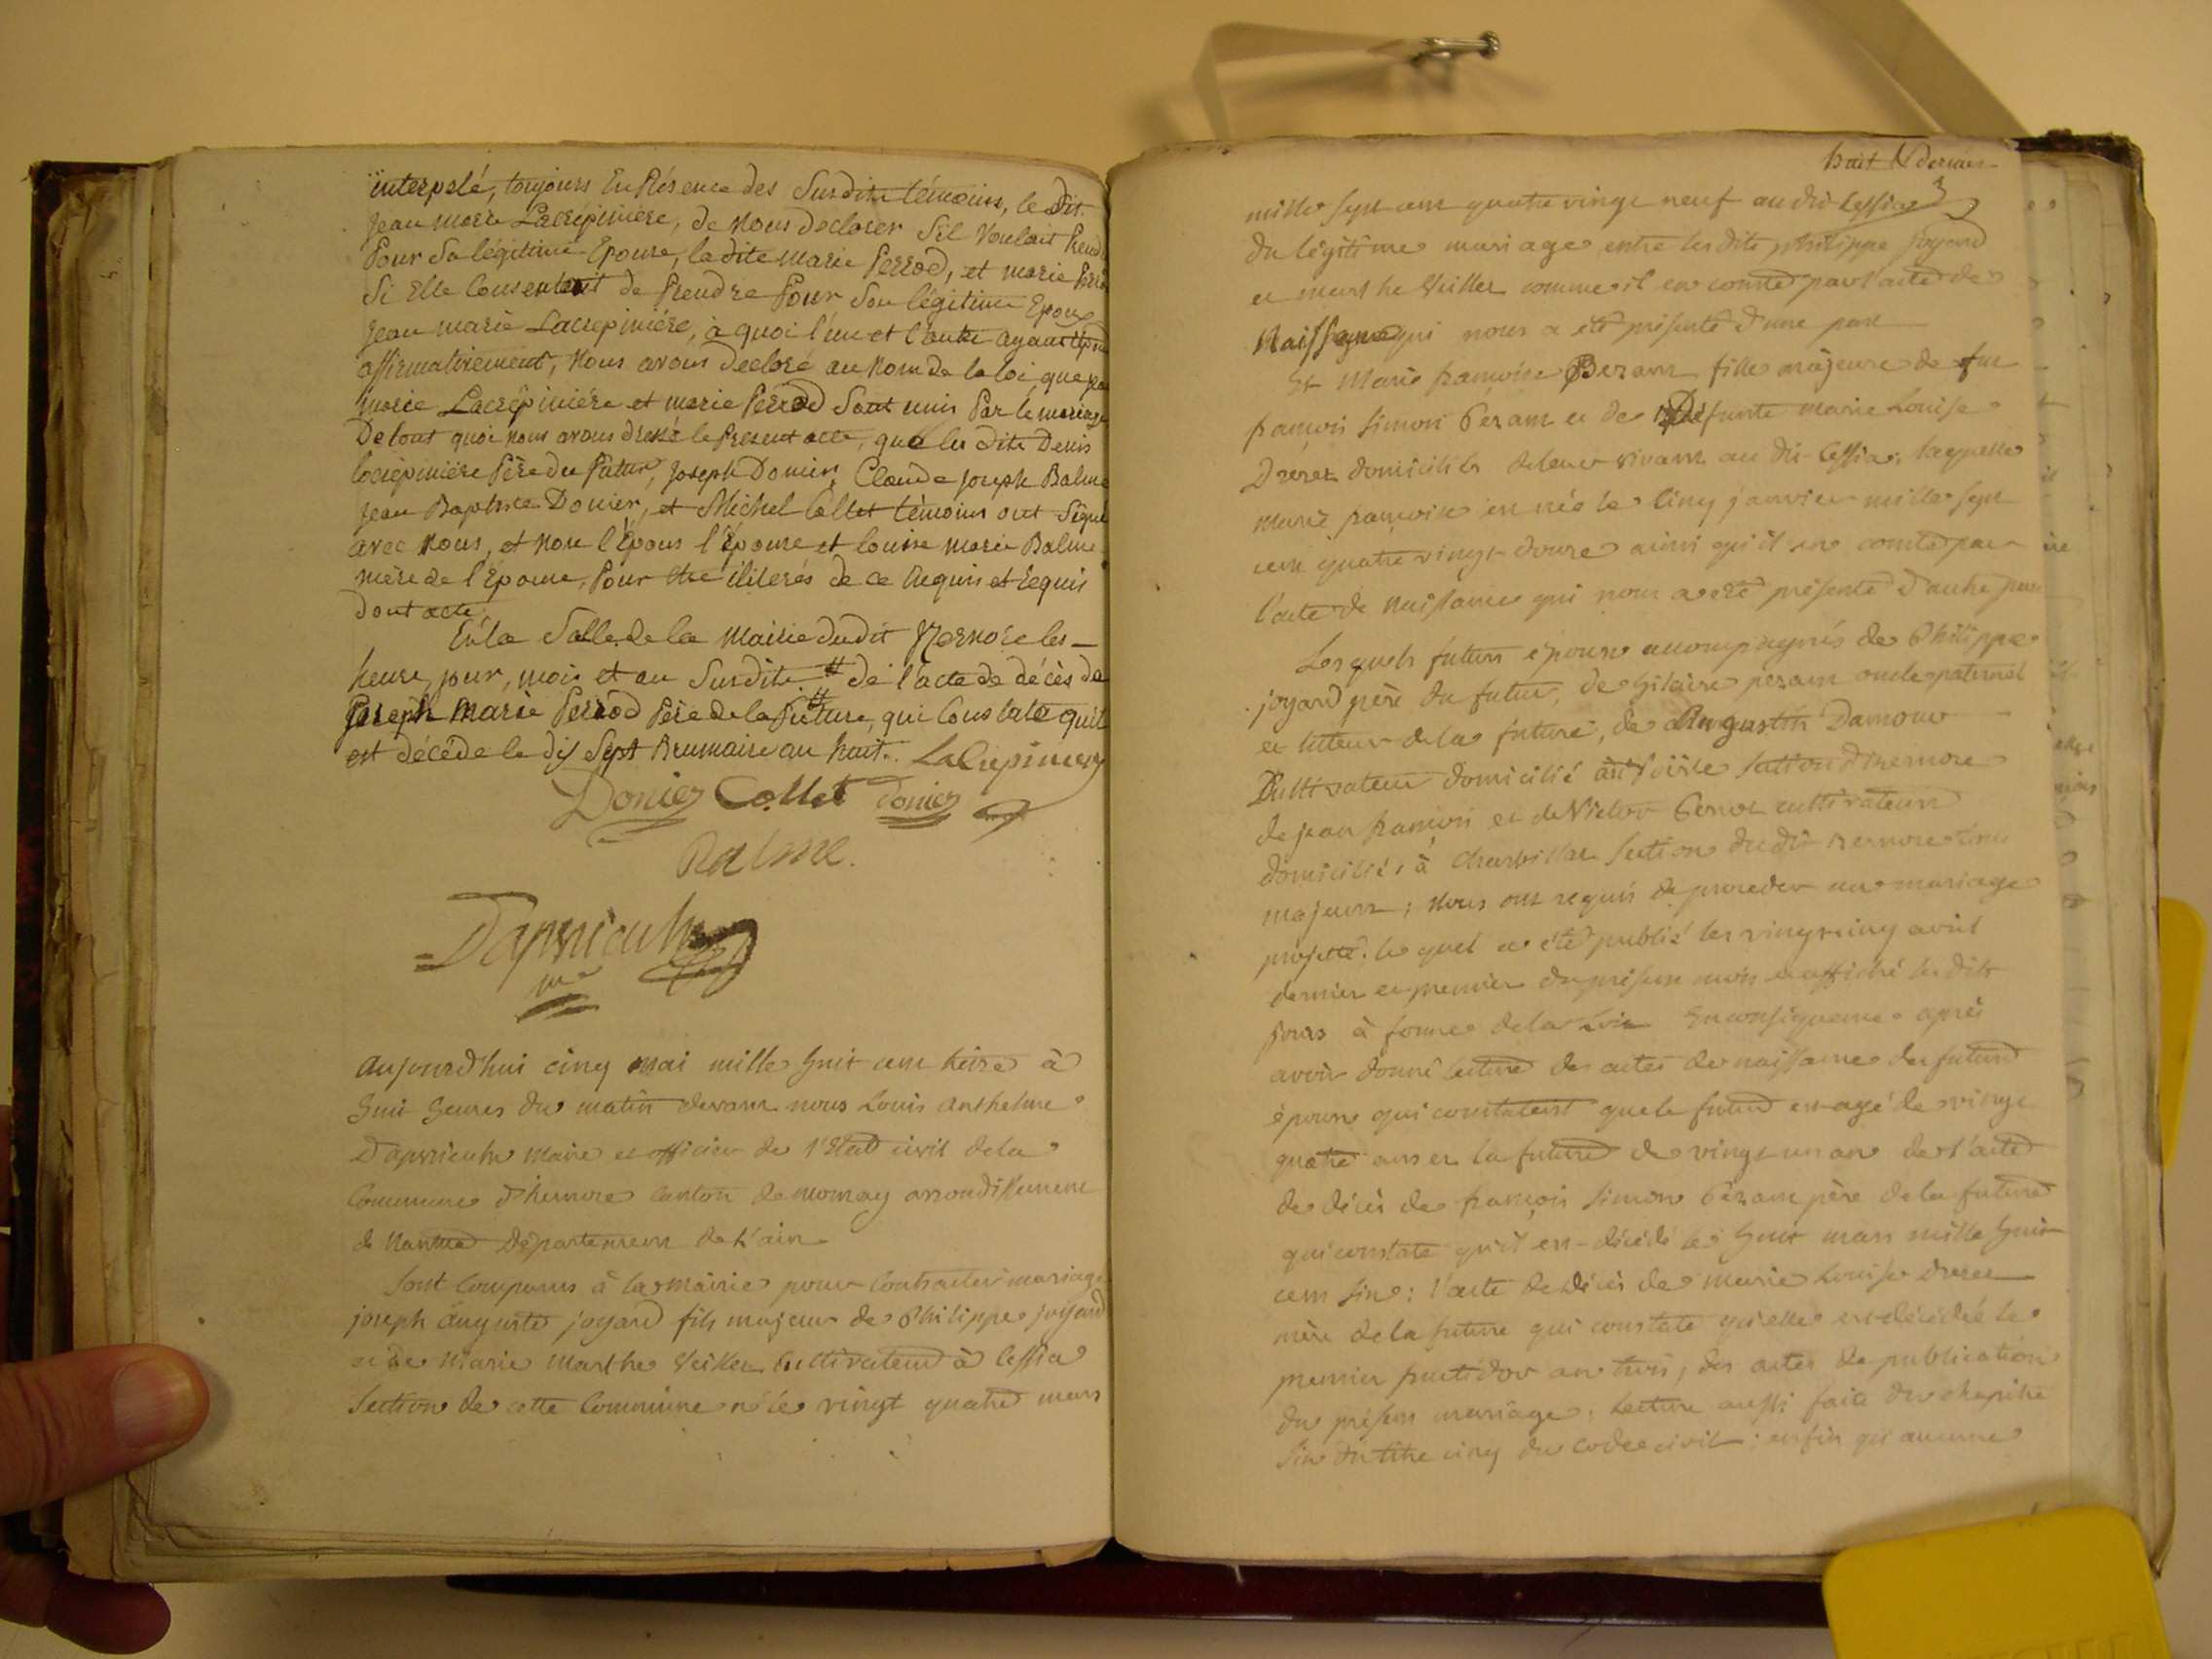 interpelé, toujours En Présence des Susdits témoins, le dit
Jean marie Lacrépiniere, de nous declarer s'il voulait Prend
Pour Sa légitime Epouse, la dite marie Perrod, et marie Perro
Si Elle Consentait de Prendre Pour Son légitime Epoux
Jean marie Lacrepiniére, à quoi l'un et l'autre ayant répond
affirmativement, Nous avons declaré au nom de la loi, que
marie Lacrépiniére et marie Perrod Sont unis Par le mariage
De tout quoi nous avons dressé le Present acte, que les dits Denis
lacrépiniére Père du Futur, Joseph Donier, Claude Joseph Balme
Jean Baptiste Donier, et Michel Collet témoins ont Signé
avec nous, et non l'Epoux l'épouse et louise marie Balme
mère de l'épouse, Pour être iliterés de ce Requis et requis
dont acte
En la Salle de la Mairie dudit hernore les
heure, jour, mois et an Susdits # de l'acte de décès de
Joseph Marie Perrod Père de la Future, qui Constate qu'il
est décédé le dix Sept Brumaire an huit. LaCrepiniere
Donier Collet Donier
Balme.
Dapvrieulx
m.e
Aujourd'hui cinq mai mille huit cent treize à
huit heures du matin devant nous Louis Anthelme
Dapvrieulx Maire et officier de l'Etat civil de la
Commune d'hernore Canton de mornay arrondissement
de Nantua Département de l'ain
Sont Comparus à la mairie pour Contracter mariage
joseph auguste joyard fils majeur de Philippe joyard
et de Marie Marthe Veillet Cultivateur à Cessia
Section de cette Commune né le vingt quatre mars
huit & dernier
mille sept cent quatre vingt neuf audit Cessia
du légitime mariage entre lesdits philippe joyard
et marthe Veillet comme il en conste par l'acte de
Naissance qui nous a été présenté d'une part
Et Marie françoise Pezam fille majeure de feu
françois Simon Pezam et de Défunte Marie Louise
Drevet domiciliés de leur vivant au dit Cessia, laquelle
marie françoise en née le Cinq janvier mille sept
cent quatre vingt douze ainsi qu'il en conste par
l'acte de naissance qui nous a été présenté d'autre part
Lesquels futurs époux accompagnés de Philippe
joyard père du futur, de hilaire pezam oncle paternel
et tuteur de la future, de Augustin Damour
Cultivateur domicilié Section d'hernore
de jean françois et de Victor Perrot cultivateurs
domiciliés à Charbillat Section dudit hernore tous
majeurs; nous ont requis de proceder au mariage
projetté. le quel a été publié les vingt cinq avril
dernier et premier du présent mois et affiché les dits
jours à forme de la Loi En conséquence après
avoir donné lecture des actes de naissance des futurs
époux qui constatent que le futur est agé de vingt
quatre ans et la future de vingt un an de l'acte
de décès de françois Simon Pezam père de la future
qui constate qu'il est décédé le huit mars mille huit
cent Six: l'acte de décès de marie Louise Drevet
mère de la future qui constate qu'elle est décédée le
premier fructidor an trois, des actes de publication
du présent mariage: lecture aussi faite du chapitre
Six du titre cinq du code civil; enfin qu'aucune